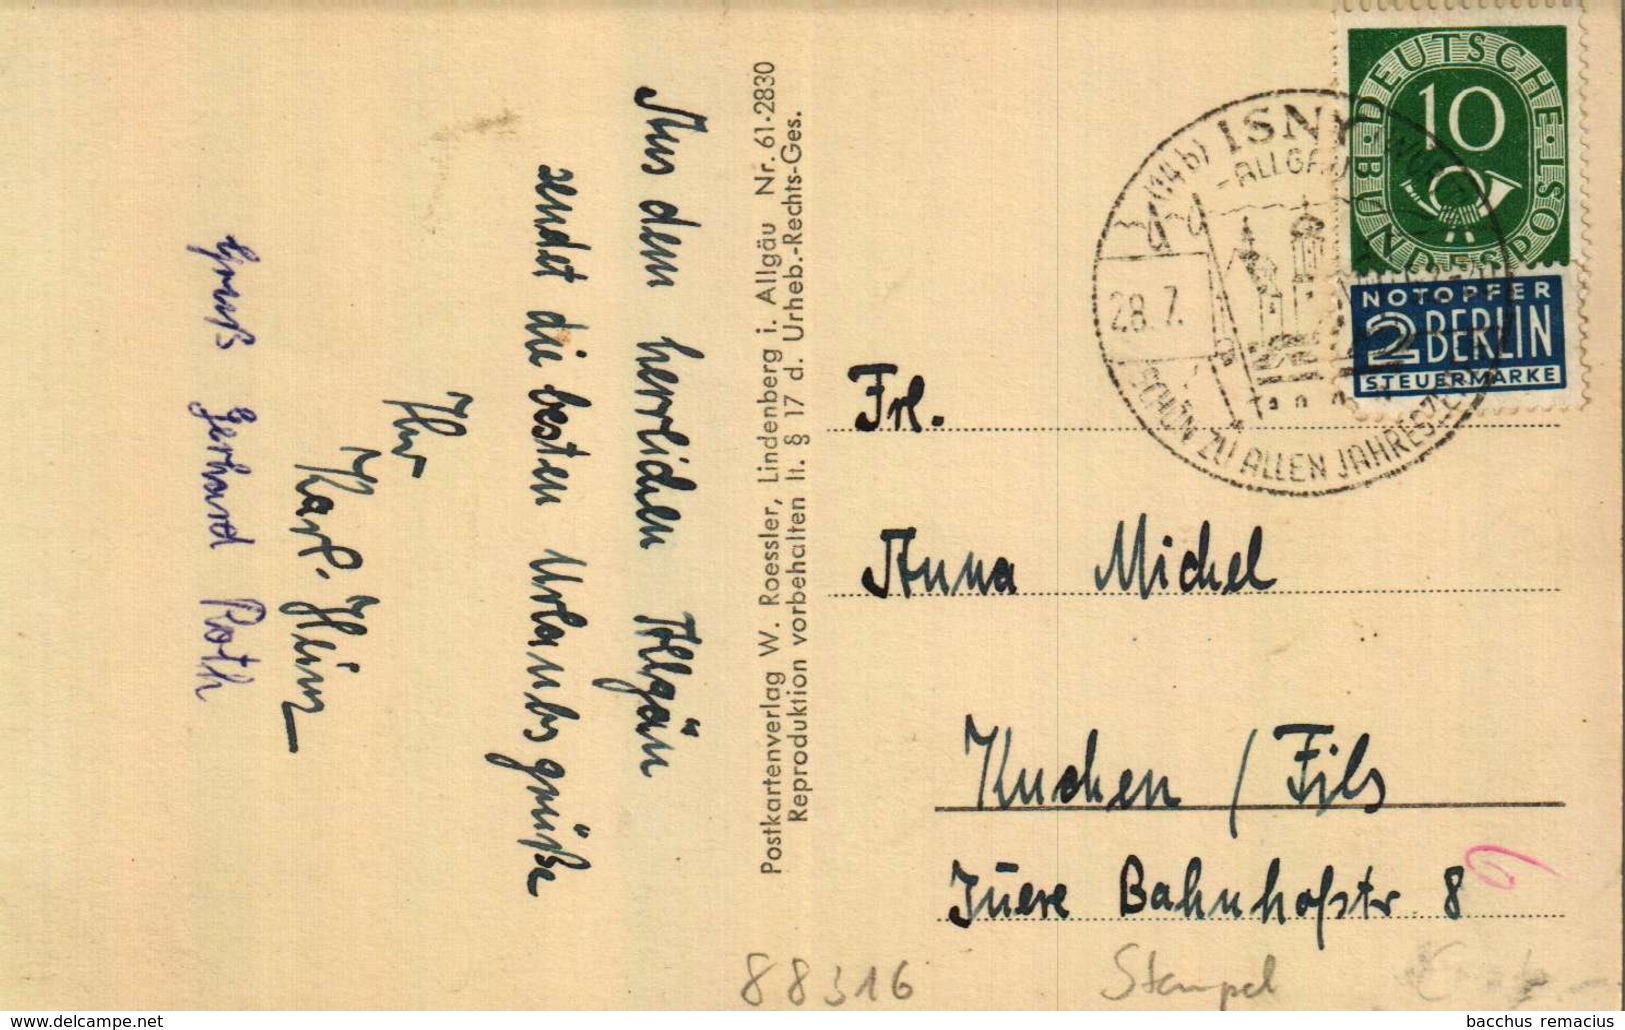 Aus dem herrlichen Allgäu
sendet die besten Urlaubsgrüße
Ihr
Karl-Heinz
Gruß Gerhard Roth
Postkartenverlag W. Roessler, Lindenberg i. Allgäu Nr. 61-2830
Reproduktion vorbehalten lt. § 17 d. Urheb.-Rechts-Ges.
DEUTSCHE BUNDESPOST
10
NOTOPFER
2 BERLIN
STEUERMARKE
(14b) ISNY
ALLGÄU
28. 7.
SCHÖN ZU ALLEN JAHRESZEITEN
Frl.
Anna Michel
Kuchen / Fils
Bahnhofstr 8
6
88316 Stempel
bacchus remacius